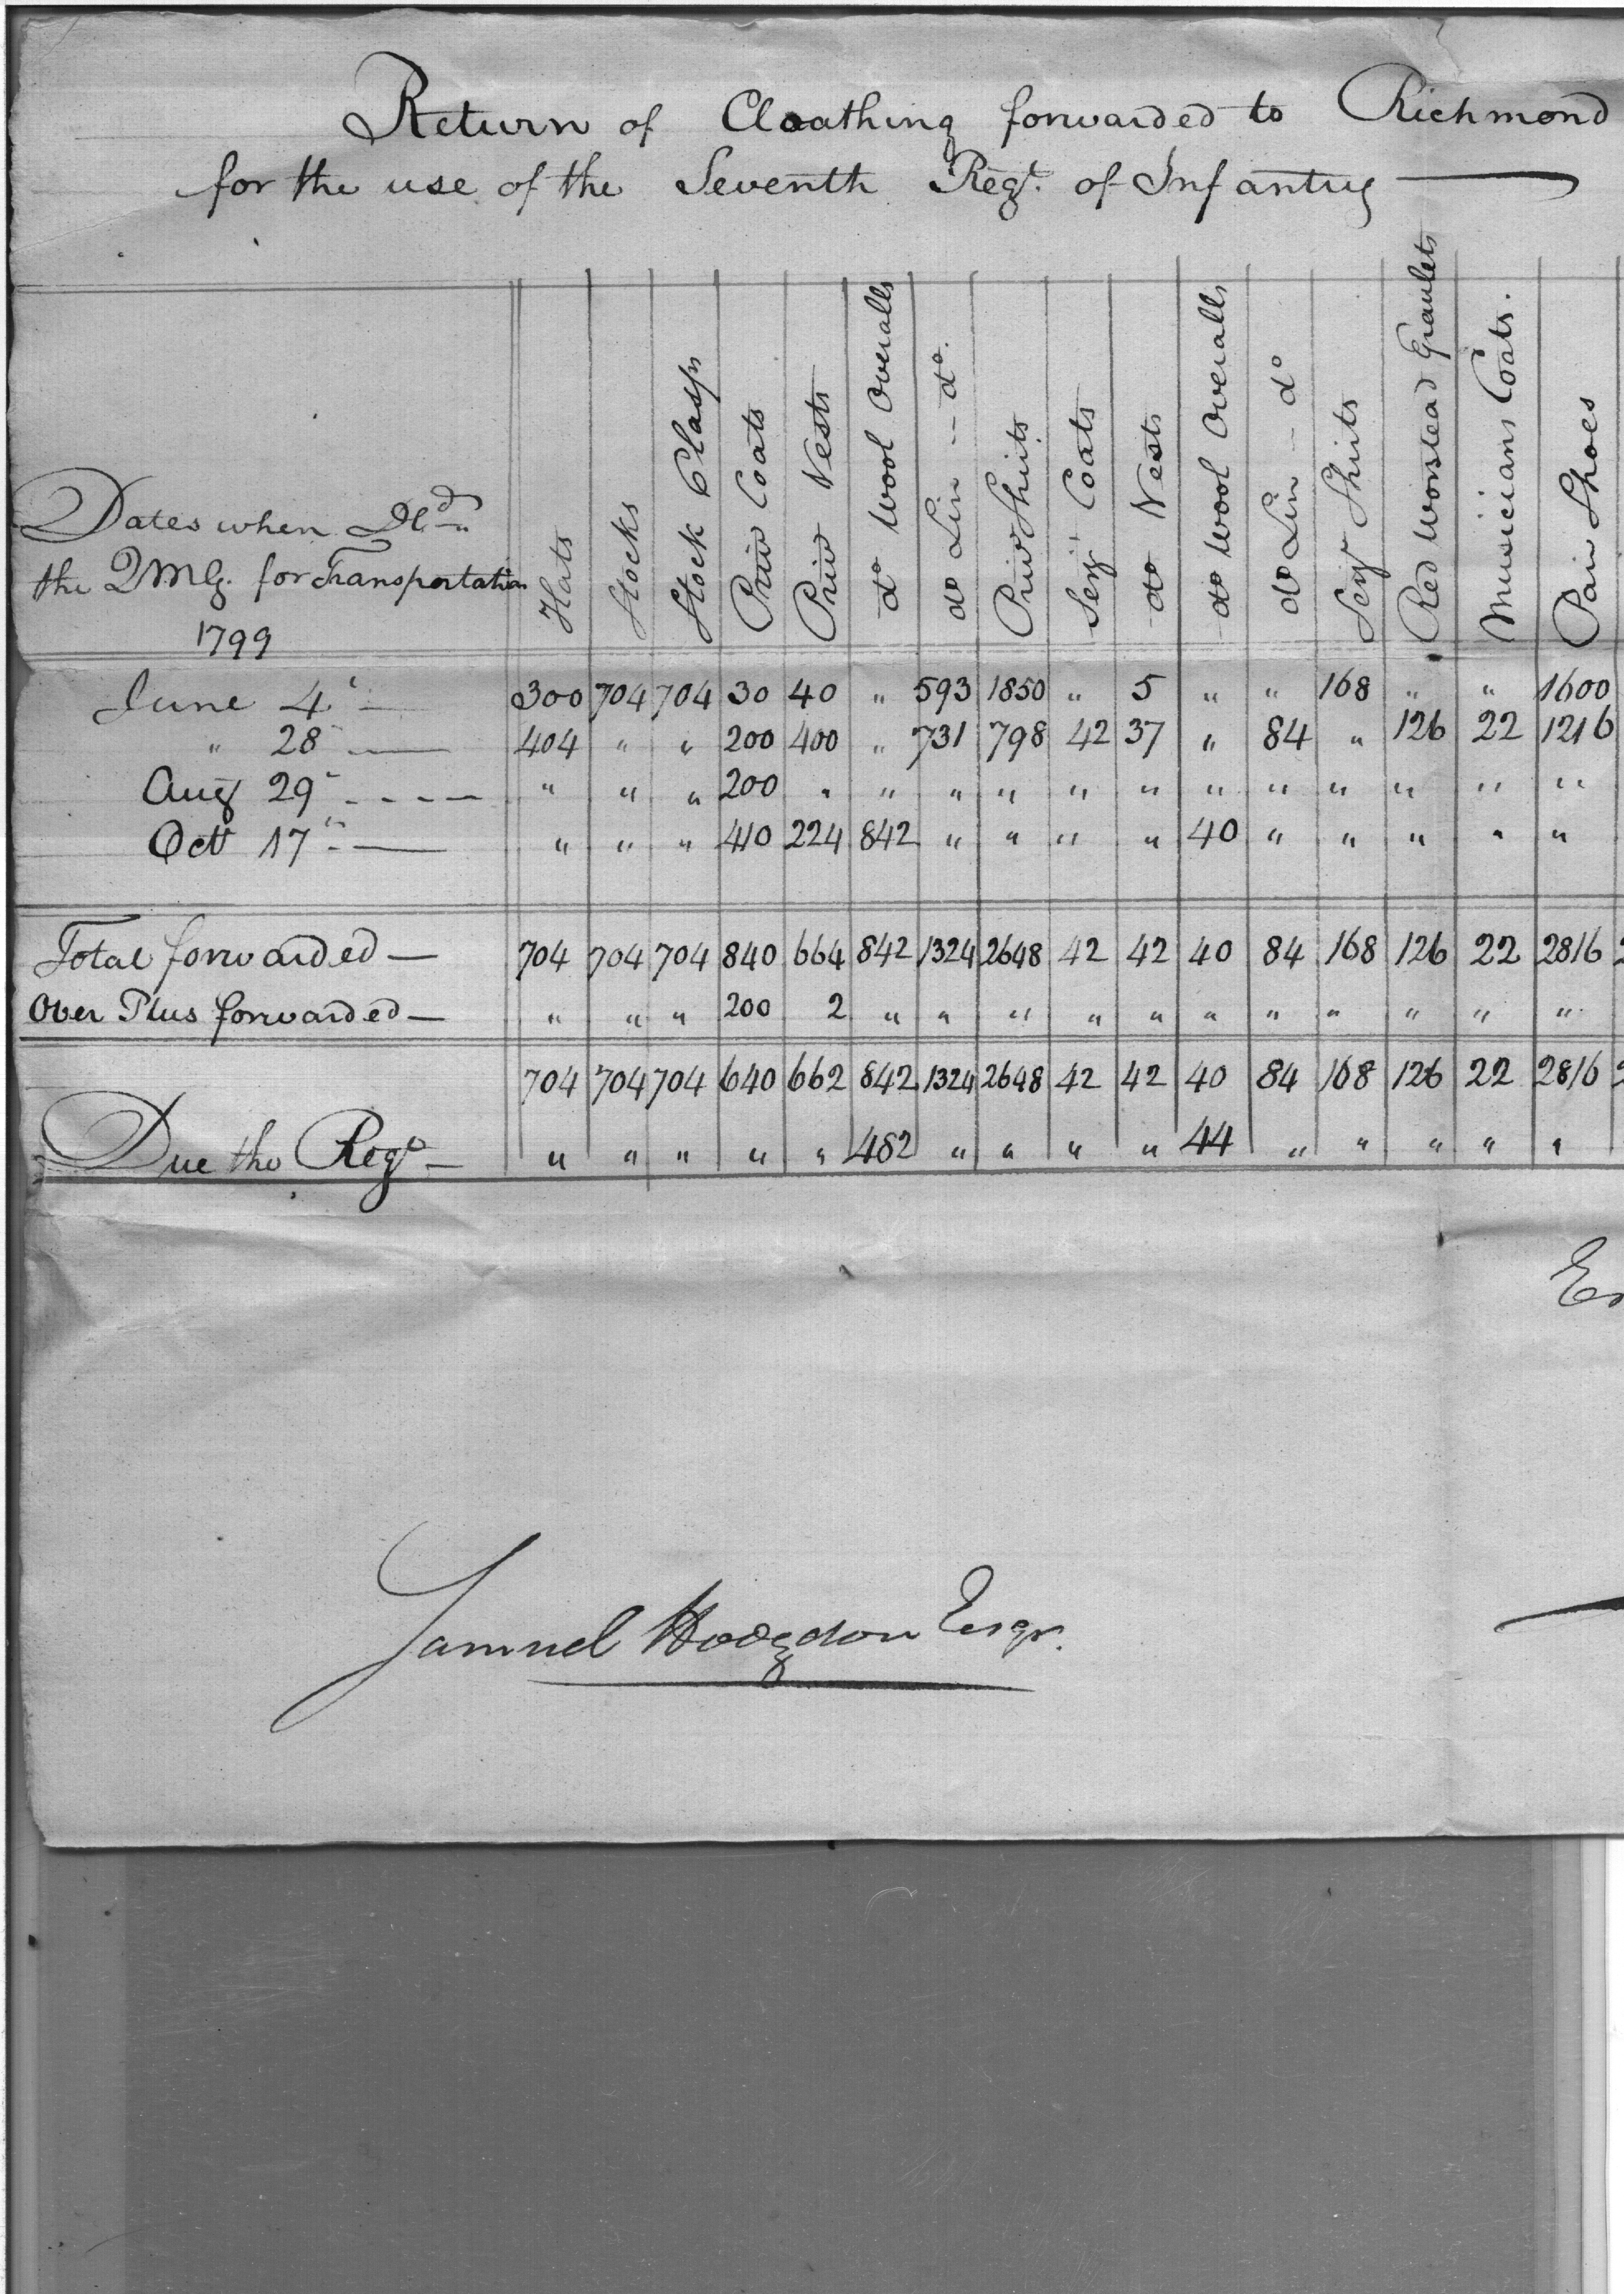 Return of Cloathing forwarded to Richmond
for the use of the Seventh Regt. of Infantry
Dates when Dld
the QMG. for Transportation
1799
Hats
Stocks
Stock Clasps
Priv Coats
Priv Vests
do Wool Overalls
do Lin -- do.
Priv Shirts
Serjt Coats
do Vests
do Wool Overalls
do Lin -- do
Serjt Shirts
Red Worstead
Musicians Coats.
Pair Shoes
June 4 — 300 704 704 30 40 " 593 1850 " 5 " " 168 " " 1600
" 28 — 404 " " 200 400 " 731 798 42 37 " 84 " 126 22 1216
Aug 29 - - - - " " " 200 " " " " " " " " " " " "
Oct 17 — " " " 410 224 842 " " " " 40 " " " " "
Total forwarded — 704 704 704 840 664 842 1324 2648 42 42 40 84 168 126 22 2816 2
Over Plus forwarded — " " " 200 2 " " " " " " " " " " "
704 704 704 640 662 842 1324 2648 42 42 40 84 168 126 22 2816 2
Due the Regt — " " " " " 482 " " " " 44 " " " " "
Samuel Hodgdon Esqr.